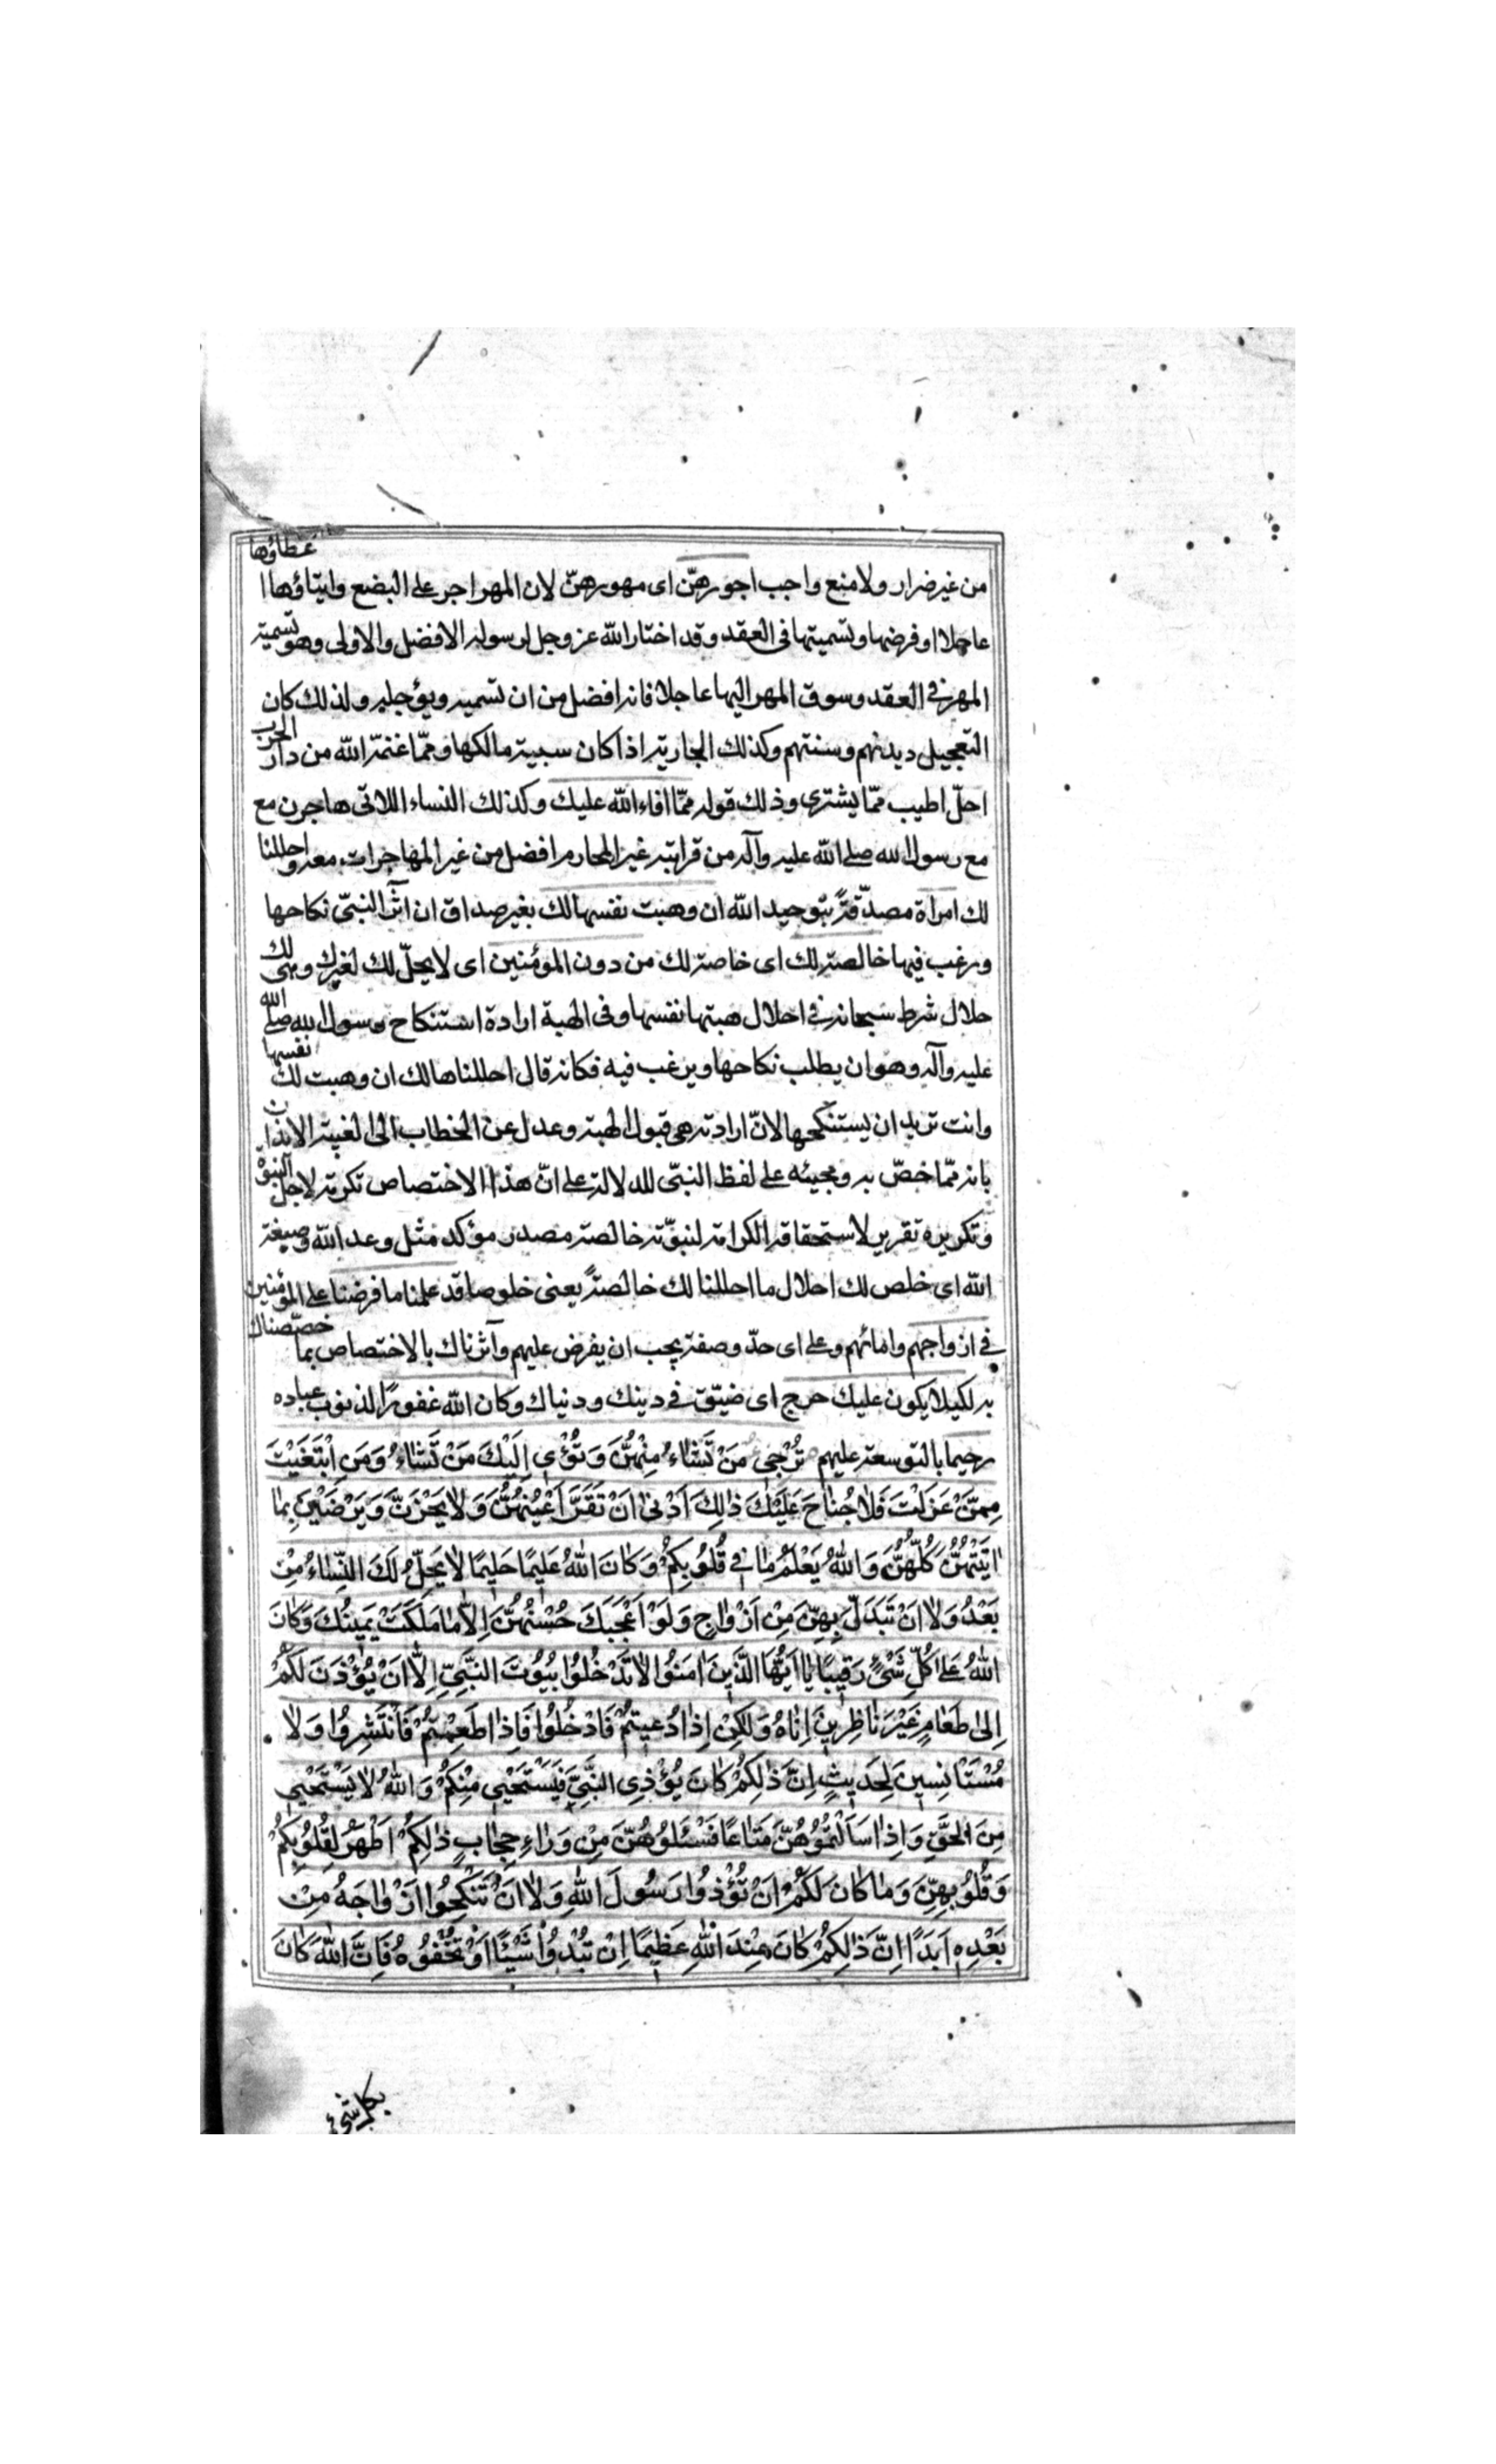 من غير ضرار ولا منع واجب اجورهنّ اى مهورهنّ لان المهر اجر على البضع وايتاؤها اعطاؤها
عاجلا او فرضها وتسميتها فى العقد وقد اختار الله عز وجل لرسوله الافضل والاولى وهو تسمية
المهر فى العقد وسوق المهر اليها عاجلا فانه افضل من ان تسميه ويؤجله ولذلك كان
التعجيل ديدنهم وسنتهم وكذلك الجارية اذا كان سبية مالكها وممّا غنمه الله من دار الحرب
احلّ اطيب ممّا يشترى وذلك قوله ممّا افاء الله عليك وكذلك النساء اللاتى هاجرن مع
مع رسول الله صلى الله عليه وآله من قرابته غير المحارم افضل من غير المهاجرات معه واحللنا
لك امراة مصدّقةً بتوحيد الله ان وهبت نفسها لك بغير صداق ان آثر النبىّ نكاحها
ورغب فيها خالصة لك اى خاصة لك من دون المؤمنين اى لا يحلّ لك لغيرك وهى لك
حلال شرط سبحانه فى احلال هبتها نفسها وفى الهبة ارادة استنكاح رسول الله صلى الله
عليه وآله وهو ان يطلب نكاحها ويرغب فيه فكانه قال احللناها لك ان وهبت لك نفسها
وانت تريد ان يستنكحها لانّ ارادته هى قبول الهبة وعدل عن الخطاب الى الغيبة الايذان
بانه ممّا خصّ به ومجيئه على لفظ النبىّ للدلالة على انّ هذا الاختصاص تكرمة لاجل النبوّة
وتكريره تقرير لاستحقاقه الكرامة لنبوّته خالصة مصدر مؤكد مثل وعد الله وصبغة
الله اى خلص لك احلال ما احللنا لك خالصةً يعنى خلوصا قد علمنا ما فرضنا على المؤمنين
فى ازواجهم وامائهم وعلى اى حدّ وصفة يجب ان يفرض عليهم وآثرناك بالاختصاص بما خصّصناك
به لكيلا يكون عليك حرج اى ضيّق فى دينك ودنياك وكان الله غفورًا لذنوب عباده
رحيما بالتوسعة عليهم تُرْجِى مَنْ تَشَاءُ مِنْهُنَّ وَتُؤْى اِلَيْكَ مَنْ تَشَاءُ وَمَنِ ابْتَغَيْتَ
مِمَّنْ عَزَلْتَ فَلاٰ جُنٰاحَ عَلَيْكَ ذٰلِكَ اَدْنىٰ اَنْ تَقَرَّ اَعْيُنُهُنَّ وَلاٰ يَحْزَنَّ وَيَرْضَيْنَ بِمٰا
اٰتَيْتَهُنَّ كُلُّهُنَّ وَاللهُ يَعْلَمُ مٰا فى قُلُوبِكُمْ وَكٰانَ اللهُ عَلِيمًا حَلِيمًا لاٰ يَحِلُّ لَكَ النِّسٰاءُ مِنْ
بَعْدُ وَلاٰ اَنْ تَبَدَّلَ بِهِنَّ مِنْ اَزْوٰاجٍ وَلَوْ اَعْجَبَكَ حُسْنُهُنَّ اِلاّٰ مٰا مَلَكَتْ يَمِينُكَ وَكٰانَ
اللهُ عَلىٰ كُلِّ شَىْءٍ رَقِيبًا يٰا اَيُّهَا الَّذِينَ اٰمَنُوا لاٰ تَدْخُلُوا بُيُوتَ النَّبِىِّ اِلاّٰ اَنْ يُؤْذَنَ لَكُمْ
اِلىٰ طَعٰامٍ غَيْرَ نٰاظِرِينَ اِنٰاهُ وَلٰكِنْ اِذٰا دُعِيتُمْ فَادْخُلُوا فَاِذٰا طَعِمْتُمْ فَانْتَشِرُوا وَلاٰ
مُسْتَأنِسِينَ لِحَدِيثٍ اِنَّ ذٰلِكُمْ كٰانَ يُؤْذِى النَّبِىَّ فَيَسْتَحْيِى مِنْكُمْ وَاللهُ لاٰ يَسْتَحْيِى
مِنَ الحَقِّ وَاِذٰا سَاَلْتُمُوُهُنَّ مَتٰاعًا فَسْئَلُوهُنَّ مِنْ وَرٰاءِ حِجٰابٍ ذٰلِكُمْ اَطْهَرُ لِقُلُوبِكُمْ
وَقُلُوبِهِنَّ وَمٰا كٰانَ لَكُمْ اَنْ تُؤْذُوا رَسُولَ اللهِ وَلاٰ اَنْ تَنْكِحُوا اَزْوٰاجَهُ مِنْ
بَعْدِهِ اَبَدًا اِنَّ ذٰلِكُمْ كٰانَ عِنْدَ اللهِ عَظِيمًا اِنْ تُبْدُوا شَيْئًا اَوْ تُخْفُوهُ فَاِنَّ اللهَ كٰانَ
بكل شىء